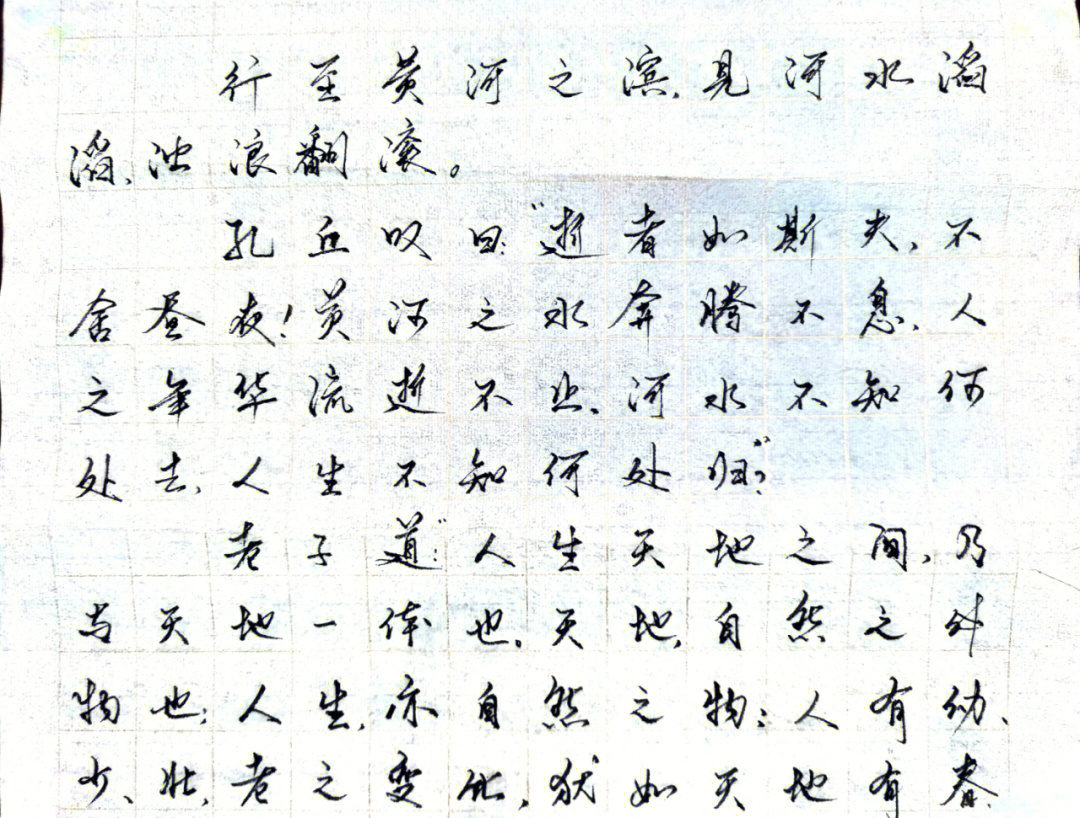 行至黄河之滨,见河水滔
滔,浊浪翻滚。
孔丘叹曰:“逝者如斯夫,不
舍昼夜!黄河之水奔腾不息,人
之年华流逝不止,河水不知何
处去,人生不知何处归?”
老子道:“人生天地之间,乃
与天地一体也。天地,自然之外
物也;人生,亦自然之物;人有幼、
少、壮、老之变化,犹如天地有春、